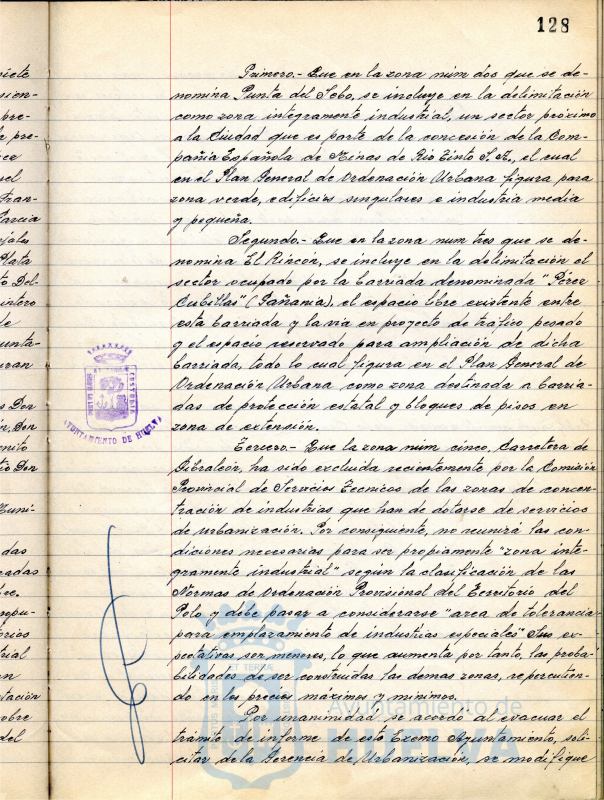 128
Primero.- Que en la zona núm dos que se de-
nomina Punta del Sebo, se incluye en la delimitación
como zona integramente industrial, un sector próximo
a la Ciudad que es parte de la concesión de la Com-
pañia Española de Minas de Rio Tinto S.A., el cual
en el Plan General de Ordenación Urbana figura para
zona verde, edificios singulares e industria media
y pequeña.
Segundo.- Que en la zona num tres que se de-
nomina El Rincón, se incluye en la delimitación el
sector ocupado por la barriada denominada "Pérez
Cubillas" (            ), el espacio libre existente entre
esta barriada y la via en proyecto de tráfico, pesado
y el espacio reservado para ampliación de dicha
barriada, todo lo cual figura en el Plan General de
Ordenación Urbana como zona destinada a barria-
das de protección estatal y bloques de pisos en
zona de extensión.
Tercero.- Que la zona núm cinco, Carretera de
Gibraleón, ha sido excluida recientemente por la Comisión
Provincial de Servicios Tecnicos de las zonas de concen-
tración de industrias que han de dotarse de servicios
de urbanización. Por consiguiente, no reunirá las con-
diciones necesarias para ser propiamente "zona inte-
gramente industrial" según la clasificación de las
Normas de Ordenación Provisional del Territorio del
Polo y debe pasar a considerarse "area de tolerancia
para emplazamiento de industrias especiales" Sus ex-
pectativas son menores, lo que aumenta por tanto, las proba-
bilidades de ser construidas las demas zonas, repercutien-
do en los precios máximos y minimos.
Por unanimidad se acordó al evacuar el
trámite de informe de este Excmo Ayuntamiento, soli-
citar de la Gerencia de Urbanización, se modifique
AYUNTAMIENTO DE HUELVA
Ayuntamiento de
HUELVA